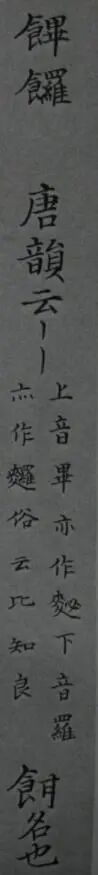 饆饠
唐韻云〡〡
上音畢亦作下音羅
亦作𪎆俗云比知良
餅名也